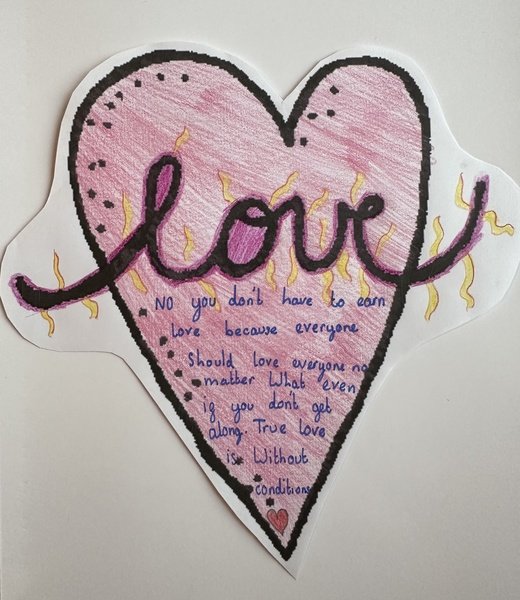 love
No you don't have to earn
love because everyone
Should love everyone no
matter What even
if you don't get
along. True love
is Without
conditions